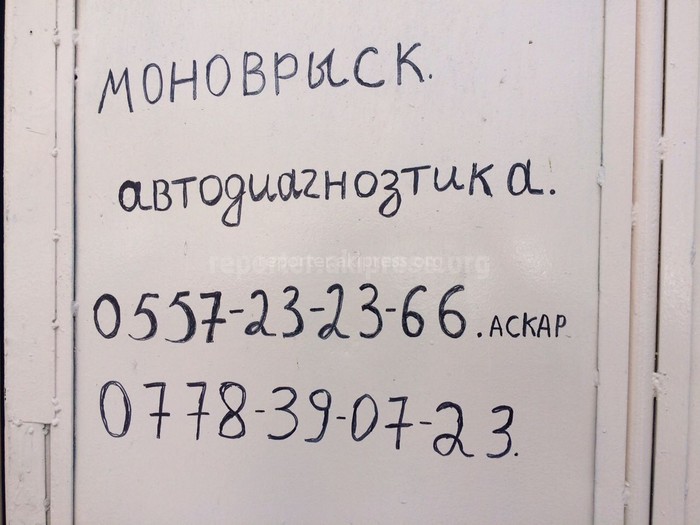 МОНОВРЫСК.
автодиагнозтика.
reporter.akipress.org
0557-23-23-66. АСКАР
0778-39-07-23.